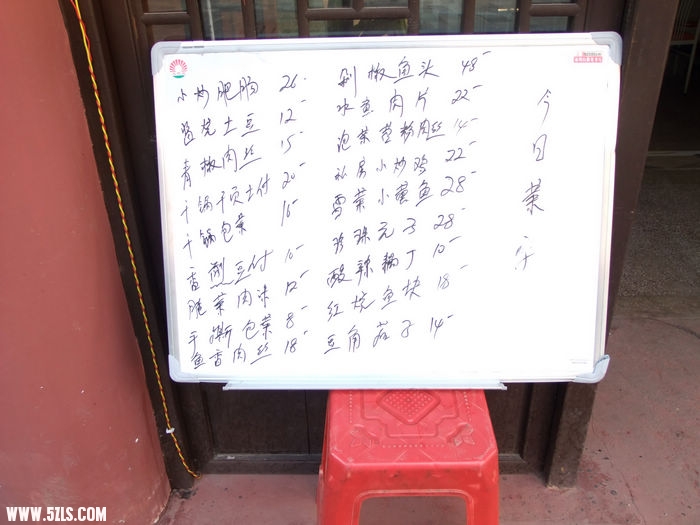 今日菜单
小炒肥肠 26-
盐菜土豆 12-
青椒肉丝 15-
干锅千页土付 20-
干锅包菜 16-
香煎豆付 10-
腌菜肉沫 12-
手撕包菜 8-
鱼香肉丝 18-
剁椒鱼头 48-
水煮肉片 22-
泡菜苕粉肉丝 14-
私房小炒鸡 22-
雪菜小黄鱼 28-
珍珠元子 28-
酸辣藕丁 10-
红烧鱼块 18-
豆角茄子 14-
WWW.5ZLS.COM